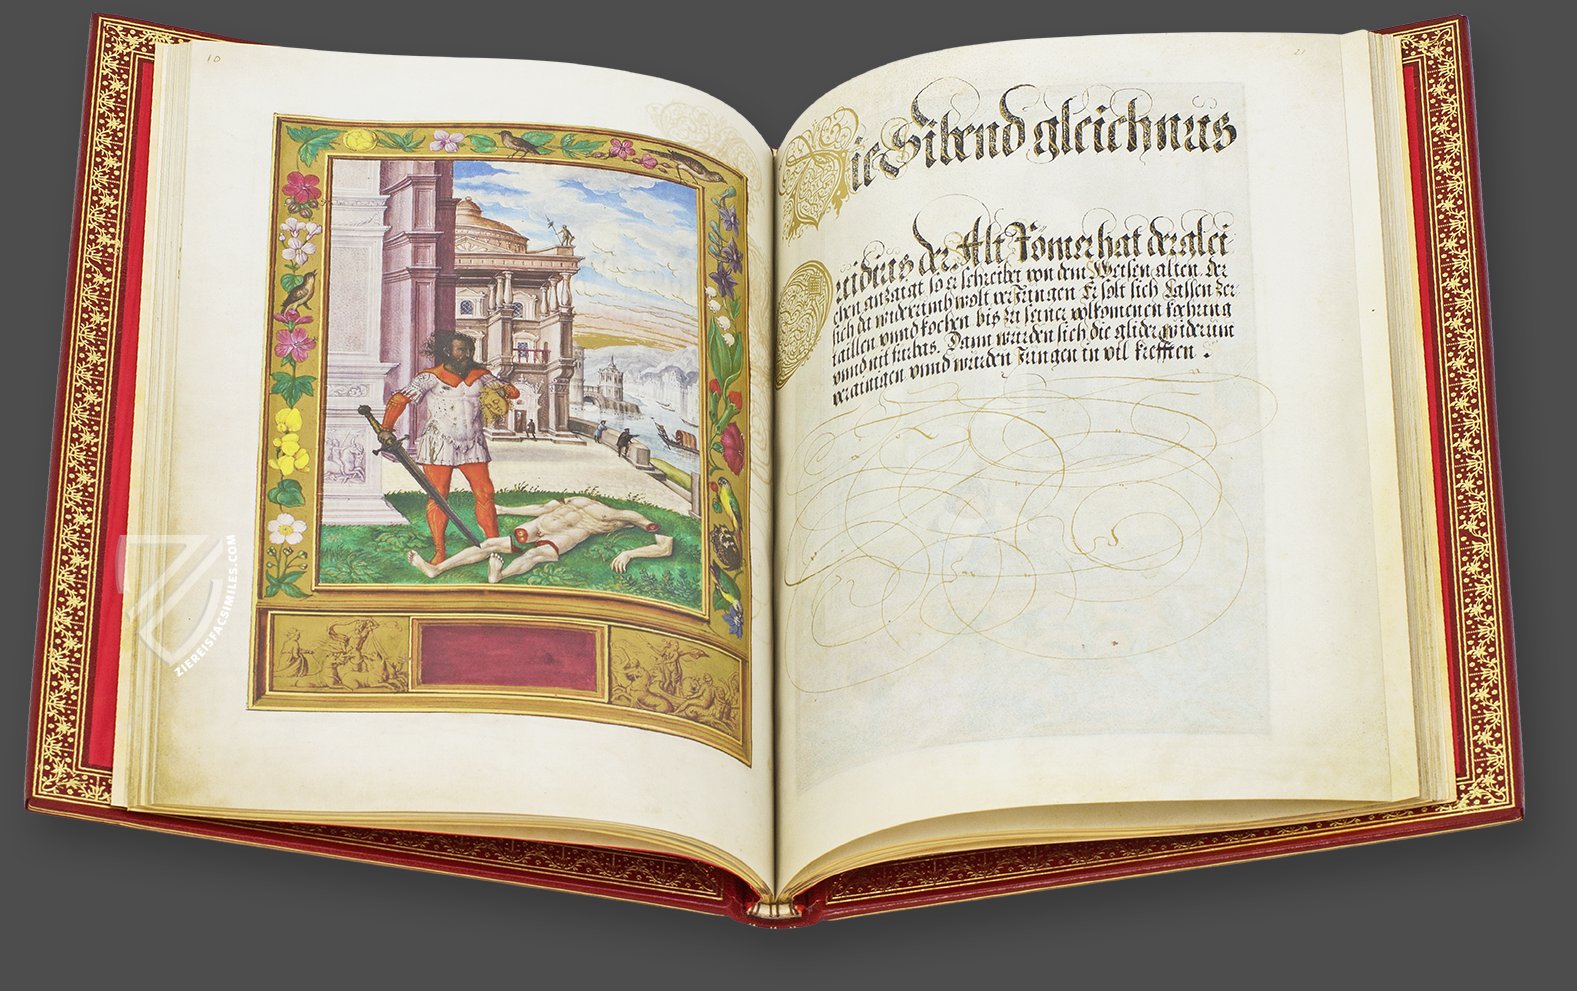 10
21
Die Sibend gleichnus
Ovidius der Alt Römer hat derglei
chen anzaigt so er schreibet von dem Weisen alten der
sich da widerumb wolt verJungen Er solt sich Lassen zer
taillen vnnd kochen bis zu seiner volkomenen kochung
vnnd nit furbas. Dann wurden sich die glider widerum
verainigen vnnd wurden Jungen in vil krefften .
ZIEREISFACSIMILES.COM